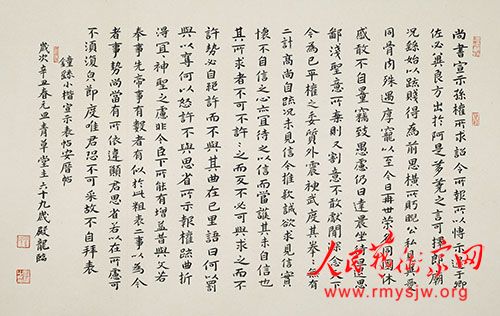 尚書宣示孫權所求詔令所報所以博示逮于卿
佐必冀良方出於阿是芻蕘之言可擇郎廟
況繇始以疏賤得為前恩橫所盼睨公私見異愛
同骨肉殊遇厚寵以至今日再世榮名同國休
慼敢不自量竊致愚慮仍日達晨坐待旦退思
鄙淺聖意所棄則又割意不敢獻聞深念天下
今為已平權之委質外震神武度其拳〻無有
二計高尚自疏況未見信今推款誠欲求見信實
懷不自信之心亦宜待之以信而當護其未自信也
其所求者不可不許〻之而反不必可與求之而不
許勢必自絕許而不與其曲在己里語曰何以罰
與以奪何以怒許不與思省所示報權疏曲折
得宜宜神聖之慮非今臣下所能有增益昔與文若
奉事先帝事有數者有似於此粗表二事以為今
者事勢尚當有所依違願君思省若以在所慮可
不須復貌節度唯君恐不可采故不自拜表
鍾繇小楷宣示表
歲次辛丑春元旦青草堂主六十九歲殿龍臨
人民艺术家网
www.rmysjw.org